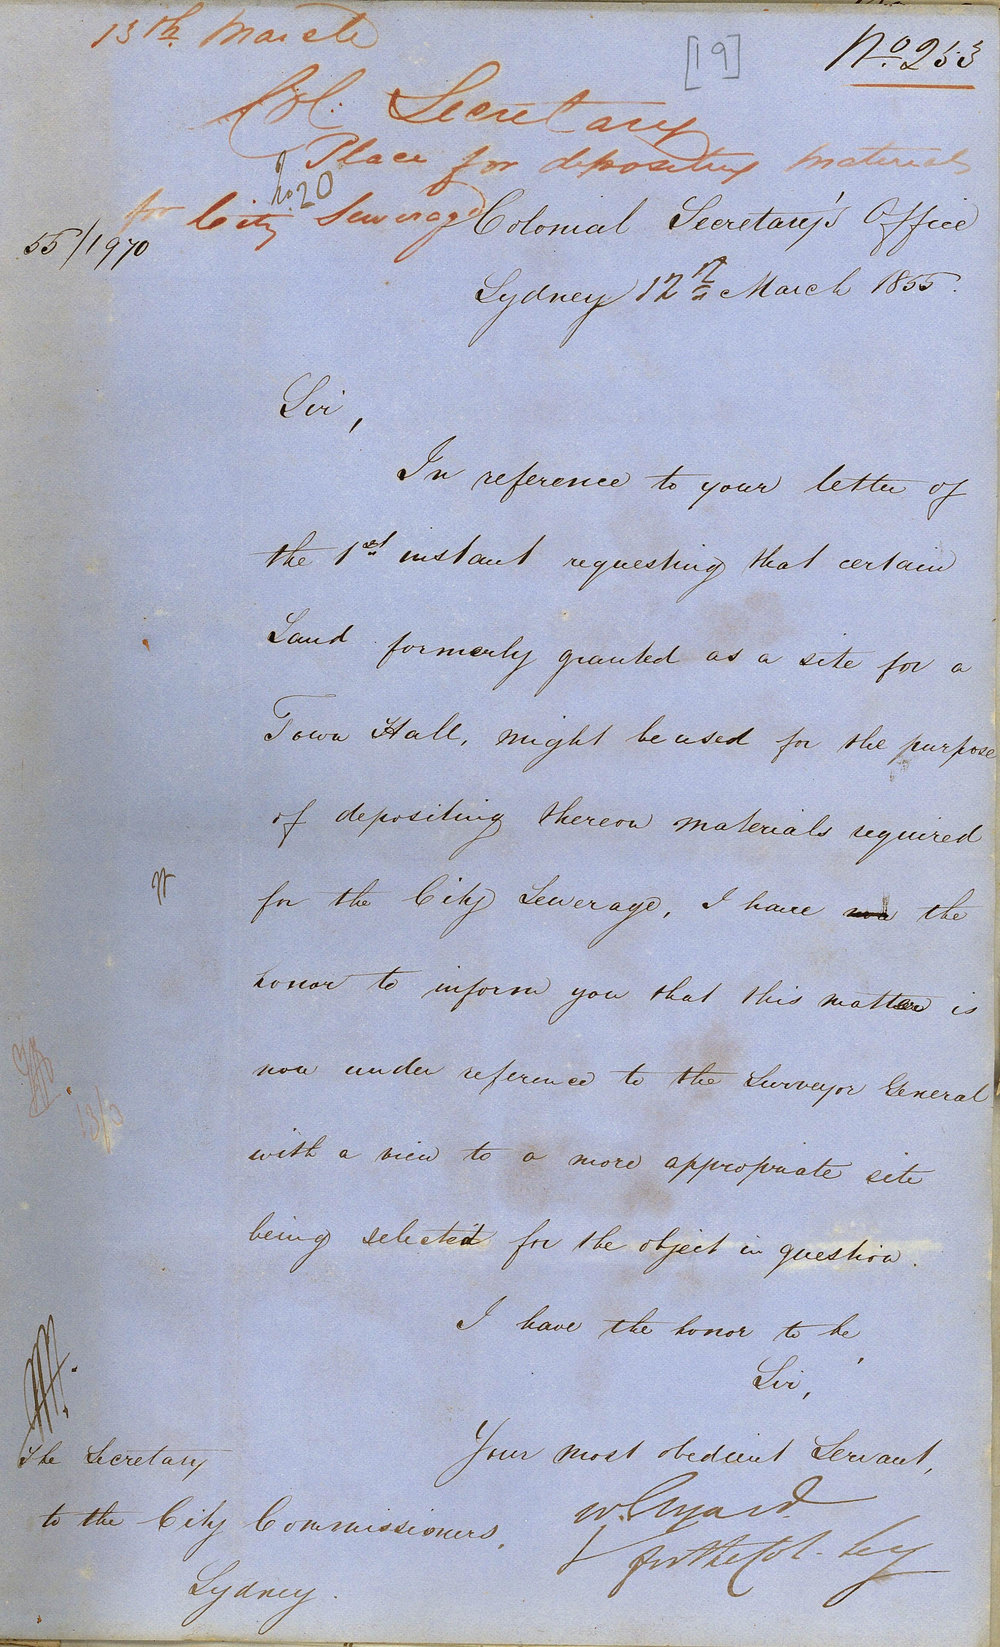 13th March
[19]
No. 253
Col. Secretary
Place for depositing materials
for City Sewerage
No. 20
55/1970
Colonial Secretary's Office
Sydney 12th March 1855.
Sir,
In reference to your letter of
the 1st instant requesting that certain
Land formerly granted as a site for a
Town Hall, might be used for the purpose
of depositing thereon materials required
for the City Sewerage, I have the
honor to inform you that this matter is
now under reference to the Surveyor General
with a view to a more appropriate site
being selected for the object in question.
I have the honor to be,
Sir,
Your most obedient Servant,
W. Elyard
for the Col. Secy
The Secretary
to the City Commissioners,
Sydney.
13/3